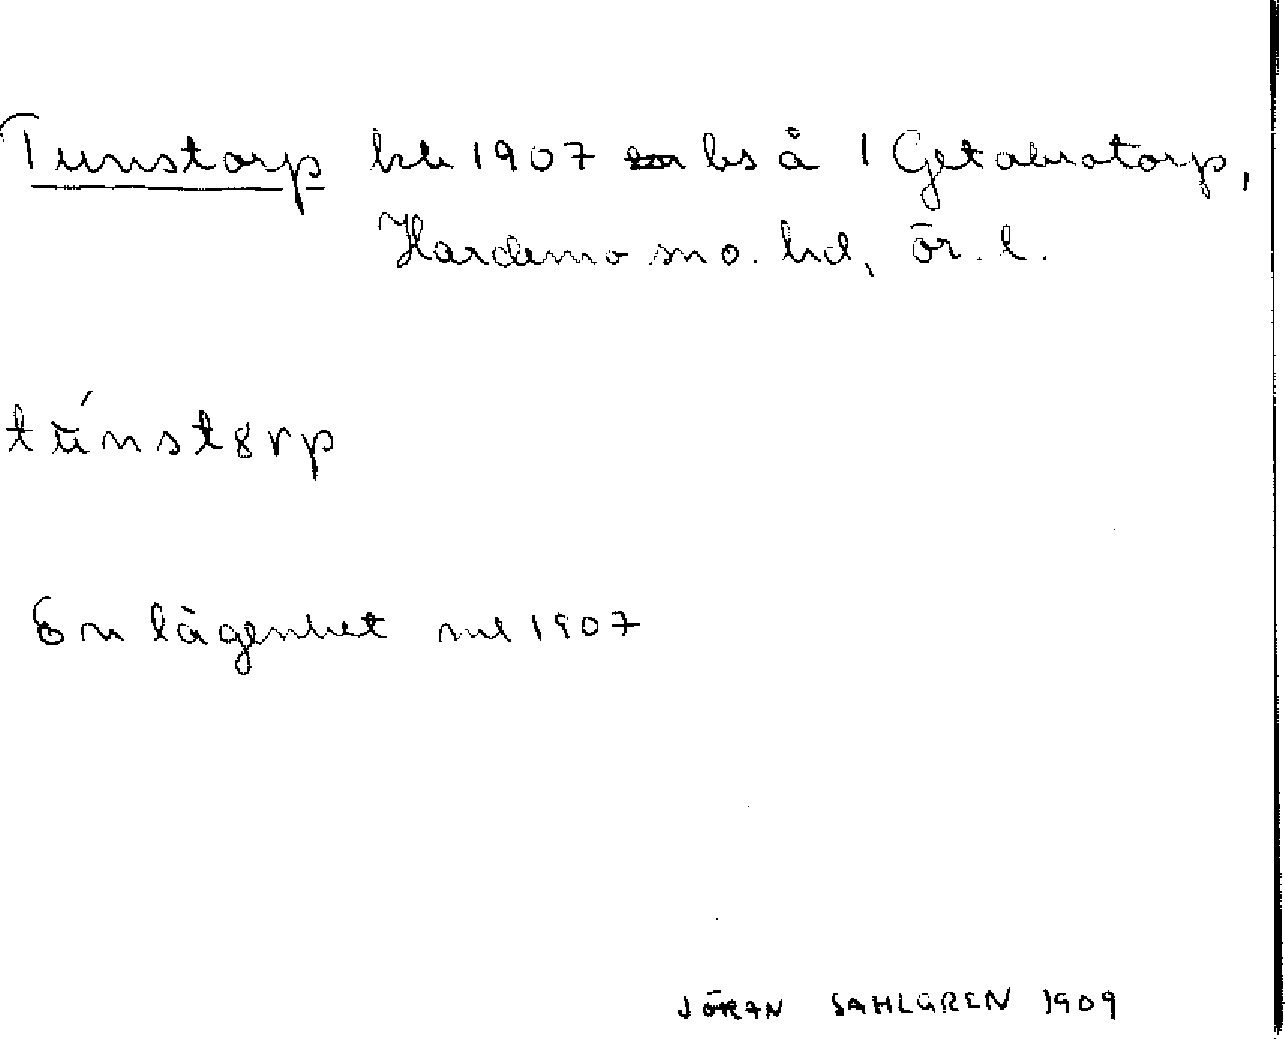 Tunstorp hfl 1907 bs å 1 Getabrotorp,
Hardemo sn o. hd, Ör. l.
túnstȣrp
En lägenhet ml 1907
JÖRAN SAHLGREN 1909